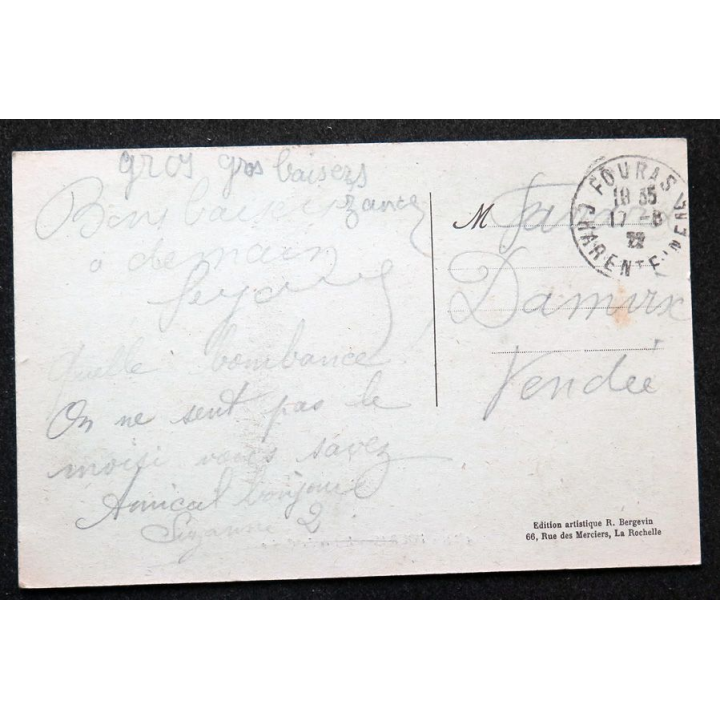 gros gros baisers
Bons baisers
à demain
Quelle bombance!
On ne sent pas le
moisi vous savez
Amical bonjour
Suzanne 2
M
Damvix
Vendée
FOURAS
CHARENTE-INFRE
18 35
17 -8
22
Edition artistique R. Bergevin
66, Rue des Merciers, La Rochelle